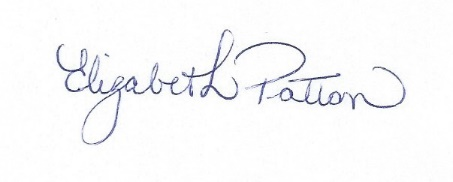 Elizabeth Patton